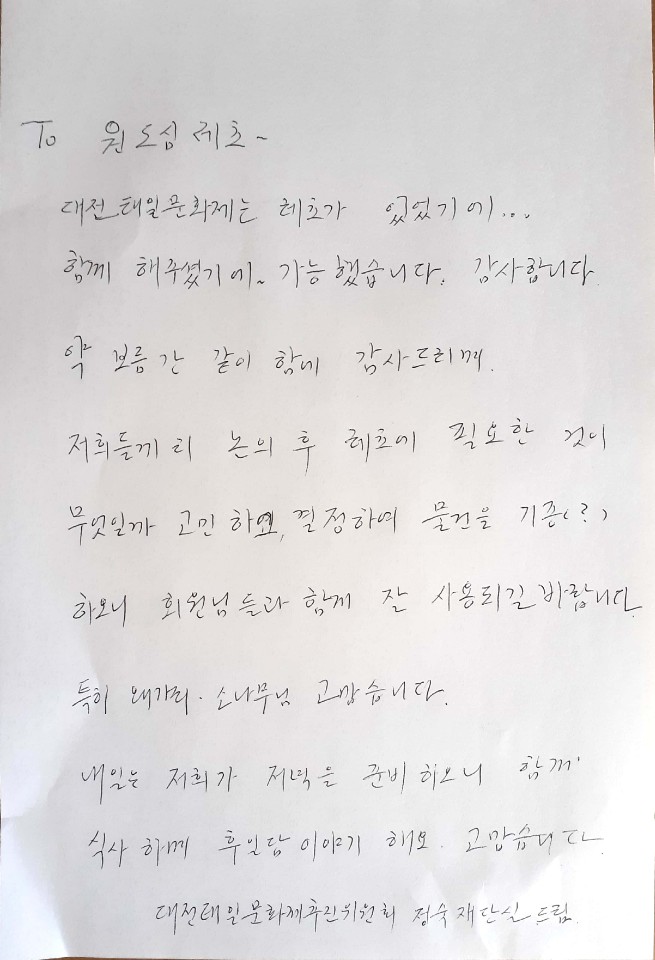 To 원도심 레츠~
대전태일문화제는 레츠가 있었기에...
함께 해주셨기에~ 가능했습니다. 감사합니다
약 보름간 같이 함에 감사드리며.
저희들끼리 논의 후 레츠에 필요한 것이
무엇일까 고민하였고, 결정하여 물건을 기증(?)
하오니 회원님들과 함께 잘 사용되길 바랍니다.
특히 왜가리·소나무님 고맙습니다.
내일은 저희가 저녁을 준비하오니 함께
식사하며 후일담 이야기 해요. 고맙습니다.
대전태일문화제추진위원회 드림.